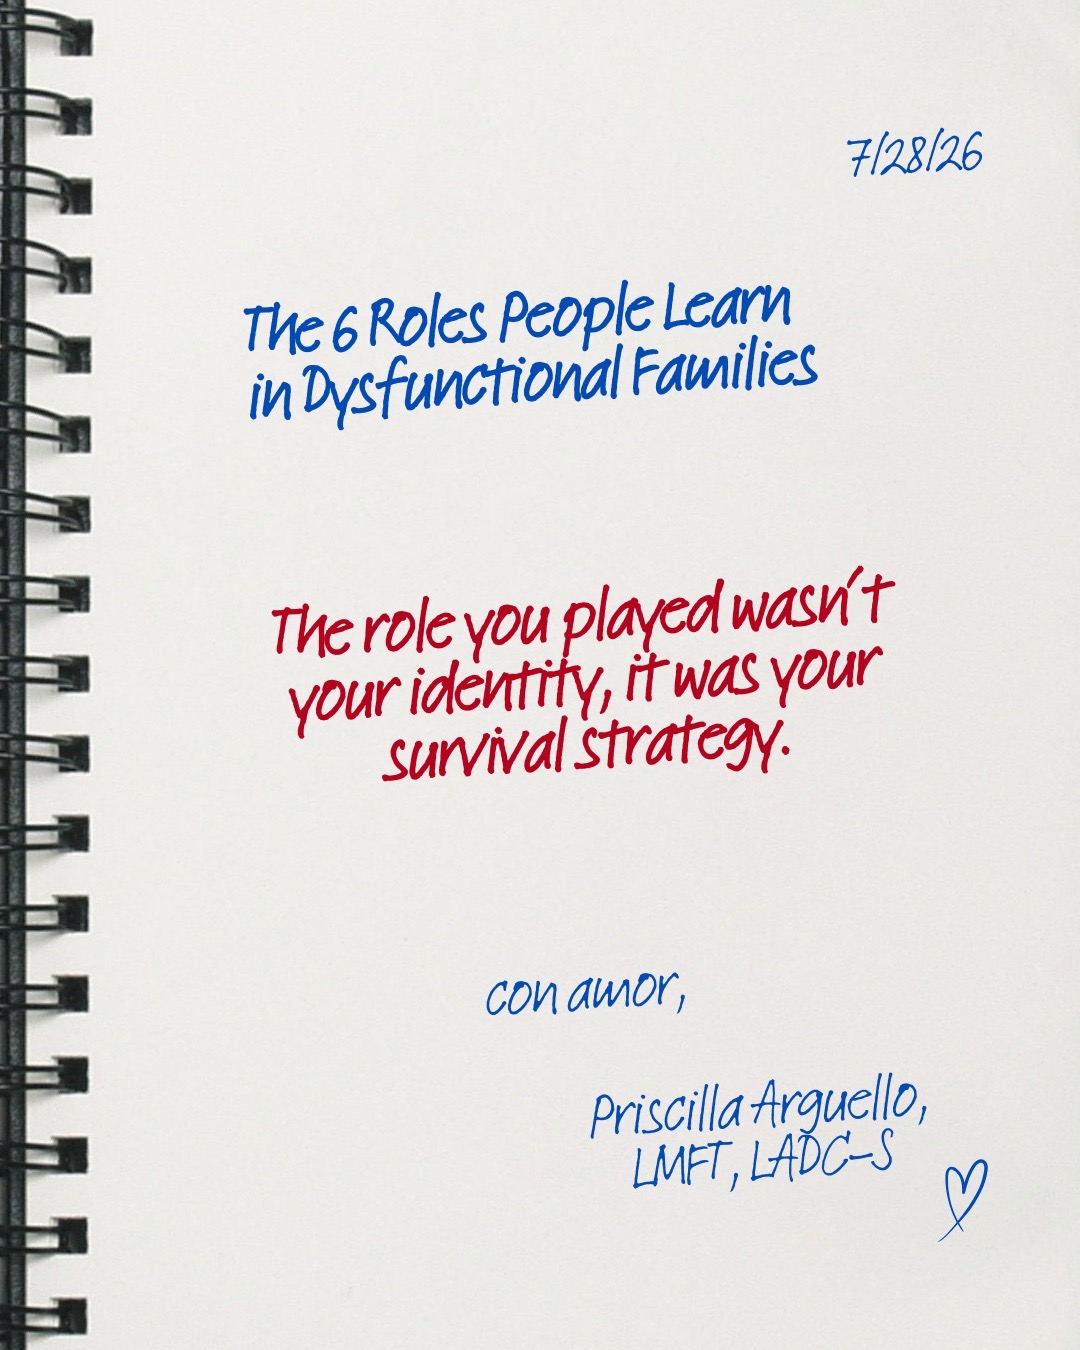 7/28/26
The 6 Roles People Learn
in Dysfunctional Families
The role you played wasn't
your identity, it was your
survival strategy.
con amor,
Priscilla Arguello,
LMFT, LADC-S